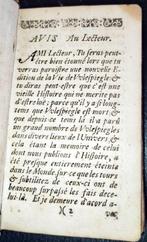 AVIS Au Lecteur.
AMI Lecteur, Tu seras peut-
être bien étonné lors que tu
verras paroistre une nouvelle E-
dition de la Vie de Vlespiegle où
tu diras peut-estre que c'est une
vieille Histoire qui ne merite pas
d'estre luë; parce qu'il y a si long-
tems que Vlespiegle est mort &
que depuis ce tems là il a paru un
grand nombre de Vlespiegles
dans divers lieux de l'Univers, &
cela étant la memoire de celui
dont nous publions l'Histoire, a
été presque entierement éteinte
dans le Monde, sur ce que les tours
& subtilitez de ceux-ci ont de
beaucoup surpassé les faits de ce-
lui-là. Et je demeure d'acord a-
(2